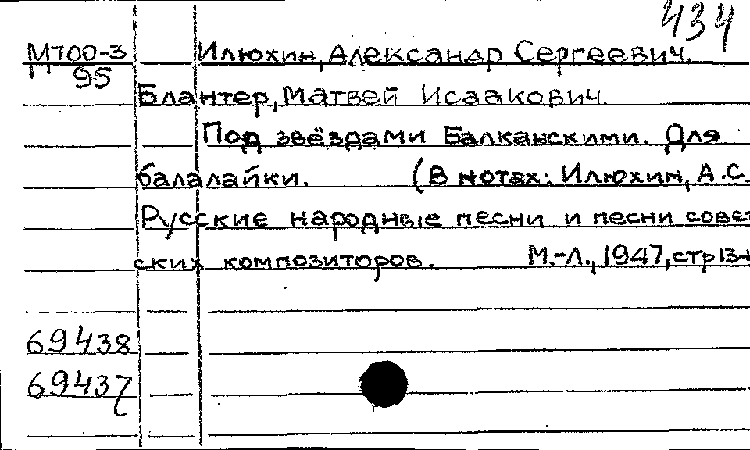 434
МТ00-3 Илюхин, Александр Сергеевич.
95
Блантер, Матвей Исаакович.
Под звёздами Балканскими. Для
балалайки. (В нотах: Илюхин, А.С.
Русские народные песни и песни совет
ских композиторов. М.-Л., 1947, стр13-
69438
69437